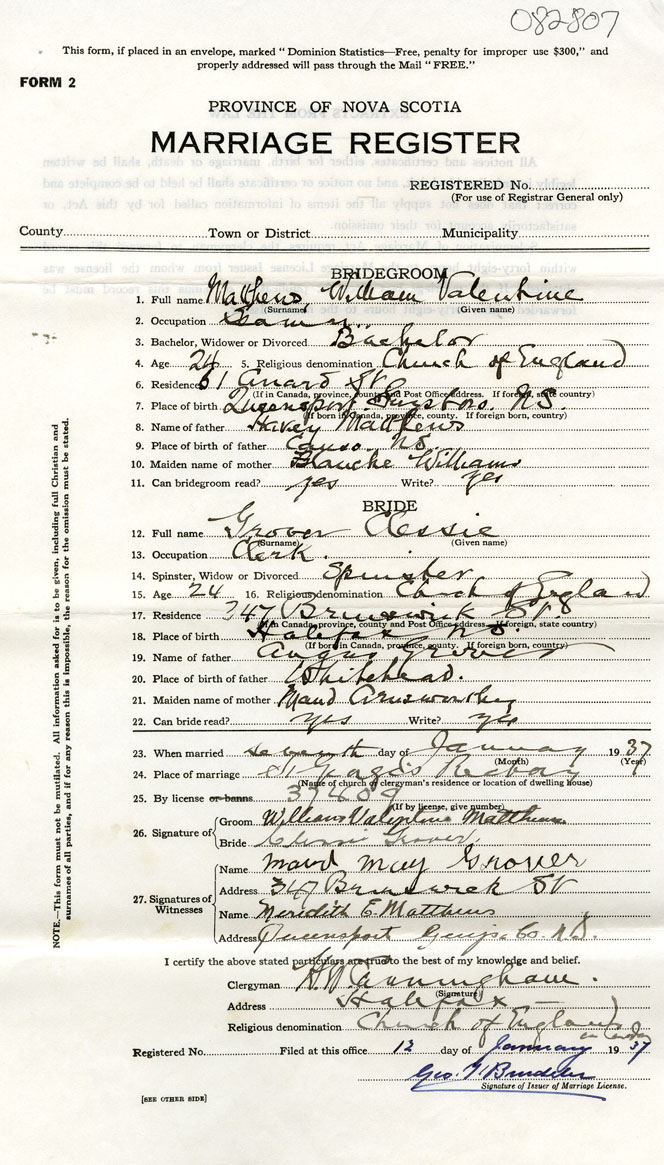 082807
This form, if placed in an envelope, marked "Dominion Statistics—Free, penalty for improper use $300," and
properly addressed will pass through the Mail "FREE."
FORM 2
PROVINCE OF NOVA SCOTIA
MARRIAGE REGISTER
REGISTERED No.
(For use of Registrar General only)
County Town or District Municipality
BRIDEGROOM
1. Full name Matthews, William Valentine
(Surname) (Given name)
2. Occupation
3. Bachelor, Widower or Divorced Bachelor
4. Age 24 5. Religious denomination Church of England
6. Residence 51 St
(If in Canada, province, county and Post Office address. If foreign, state country)
7. Place of birth Queensport, N.S.
(If born in Canada, province, county. If foreign born, country)
8. Name of father Harvey Matthews
9. Place of birth of father Canso N.S.
10. Maiden name of mother Blanche Williams
11. Can bridegroom read? yes Write? yes
BRIDE
12. Full name Grover Clessie
(Surname) (Given name)
13. Occupation Clerk.
14. Spinster, Widow or Divorced Spinster
15. Age 24 16. Religious denomination Church of England
17. Residence 347 Brunswick St.
(If in Canada, province, county and Post Office address. If foreign, state country)
18. Place of birth Halifax N.S.
(If born in Canada, province, county. If foreign born, country)
19. Name of father Angus Grover
20. Place of birth of father Whitehead.
21. Maiden name of mother Maud
22. Can bride read? yes Write? yes
23. When married seventh day of January 1937
(Month) (Year)
24. Place of marriage St Rectory
(Name of church or clergyman's residence or location of dwelling house)
25. By license or banns
(If by license, give number)
26. Signature of Groom William Valentine Matthews
Bride Clessie Grover
27. Signatures of Witnesses
Name Maud May Grover
Address 347 Brunswick St
Name Meridith E. Matthews
Address Queensport Guys. Co. N.S.
I certify the above stated particulars are true to the best of my knowledge and belief.
Clergyman H. W. Cunningham.
(Signature)
Address Halifax
Religious denomination Church of England in Canada
Registered No. Filed at this office 12 day of January 1937
Geo.
Signature of Issuer of Marriage License.
[SEE OTHER SIDE]
NOTE.—This form must not be mutilated. All information asked for is to be given, including full Christian and
surnames of all parties, and if for any reason this is impossible, the reason for the omission must be stated.